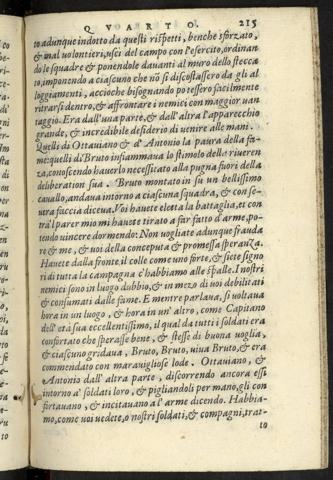 QVARTO. 215
to adunque indotto da questi rispetti, benche sforzato,
& mal uolontieri, usci del campo con l'esercito, ordinan
do le squadre & ponendole dauanti al muro dello stecca
to, imponendo a ciascuno che nō si discostassero da gli al
loggiamenti, accioche bisognando potessero facilmente
ritrarsi dentro, & affrontare i nemici con maggior uan
taggio. Era dall'una parte, & dall'altra l'apparecchio
grande, & incredibile desiderio di uenire alle mani.
Quelli di Ottauiano & d'Antonio la paura della fa-
me: quelli di Bruto infiammaua lo stimolo della riueren
za, conoscendo hauerlo necessitato alla pugna fuori della
deliberation sua. Bruto montato in su un bellissimo
cauallo, andaua intorno a ciascuna squadra, & con se-
uera faccia diceua. Voi hauete eletta la battaglia, et con
tra'l parer mio mi hauete tirato a far fatto d'arme, po-
tendo uincere dormendo. Non uogliate adunque frauda
re & me, & uoi della conceputa & promessa speranza.
Hauete dalla fronte il colle come uno forte, & siete signo
ri di tutta la campagna c'habbiamo alle spalle. I nostri
nemici sono in luogo dubbio, & in mezo di uoi debilitati
& consumati dalle fame. E mentre parlaua, si uoltaua
hora in un luogo, & hora in un'altro, come Capitano
dell'età sua eccellentissimo, il qual da tutti i soldati era
confortato che sperasse bene, & stesse di buona uoglia,
& ciascuno gridaua, Bruto, Bruto, uiua Bruto, & era
commendato con marauigliose lode. Ottauiano, &
Antonio dall'altra parte, discorrendo ancora essi
intorno a' soldati loro, & pigliandoli per mano, gli con
fortauano, & incitauano a l'arme dicendo. Habbia-
mo, come uoi uedete, o nostri soldati, & compagni, trat-
to